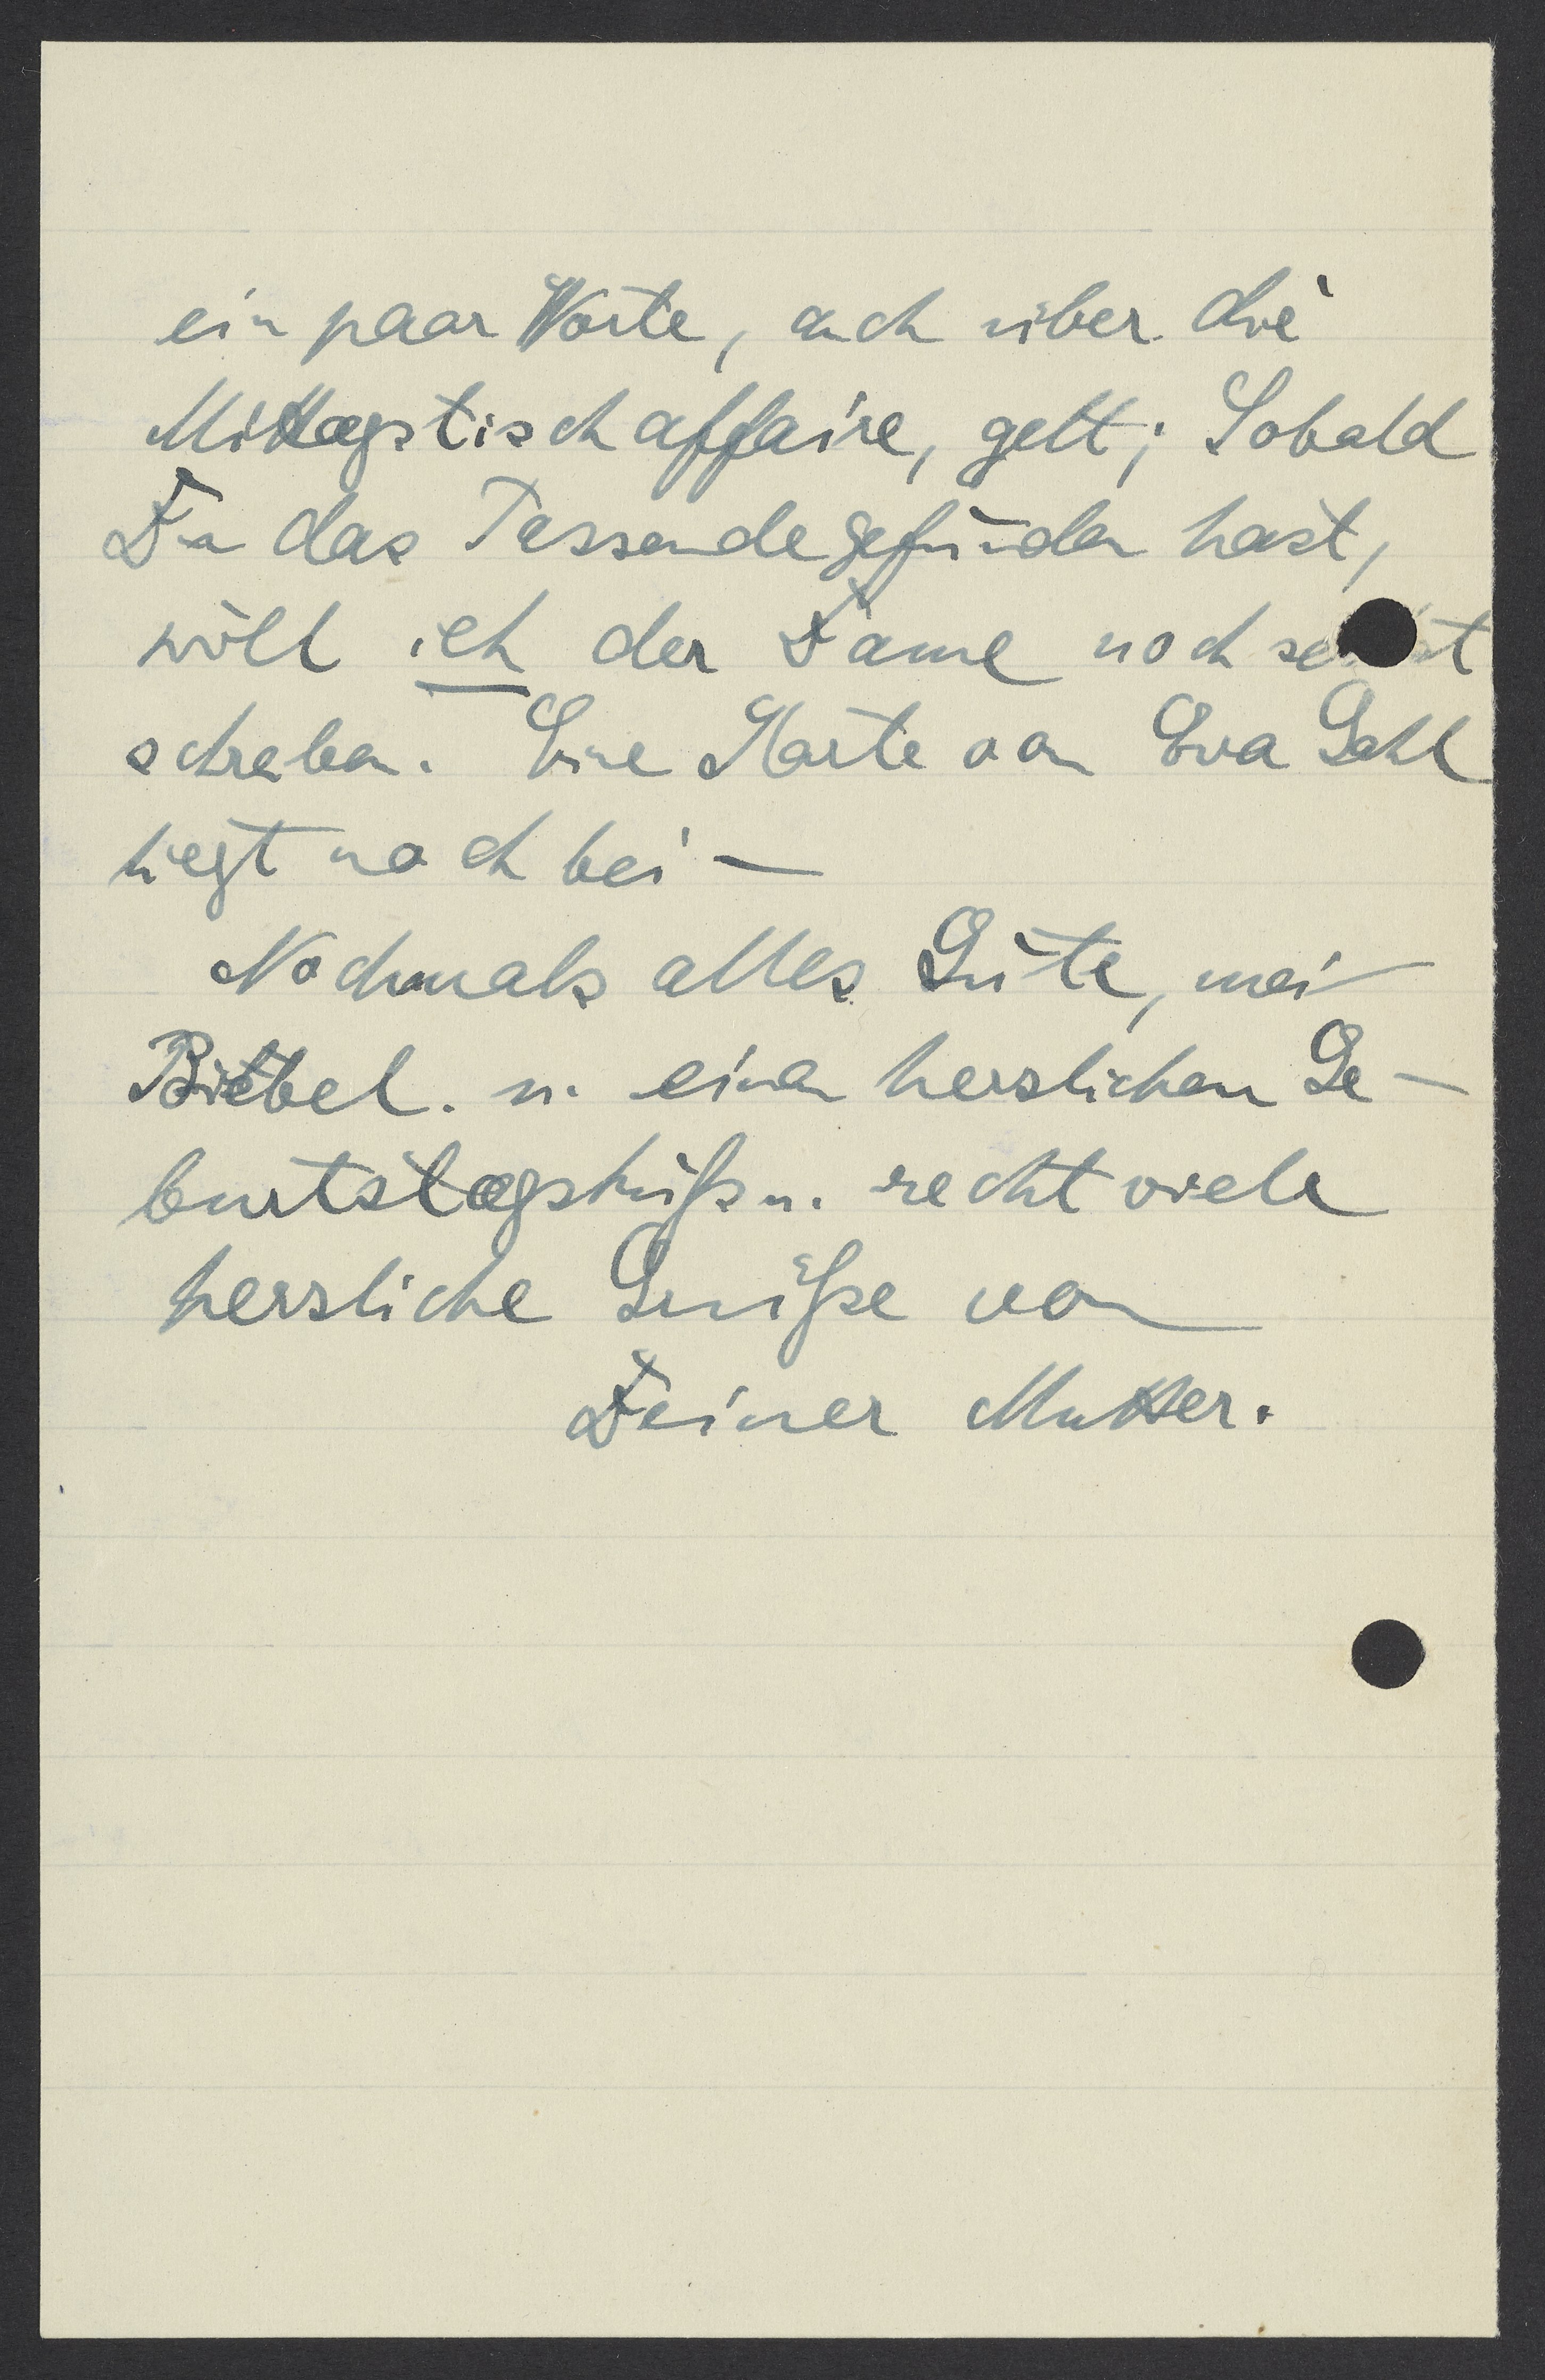 ein paar Worte, auch über die
Mittagstischaffaire, gelt; Sobald
Du das Passende gefunden hast,
will ich der Dame noch selbst
schreiben. Eine Karte von Eva
liegt noch bei —
Nochmals alles Gute, mein
u. einen herzlichen Ge-
burtstagskuß u. recht viele
herzliche Grüße von
Deiner Mutter.